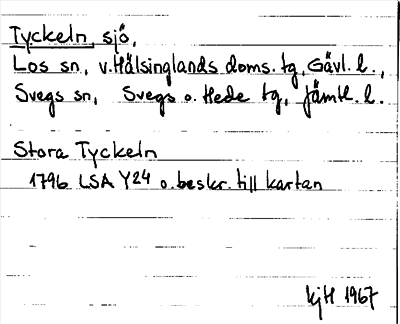 Tyckeln, sjö,
Los sn, v. Hälsinglands doms. tg, Gävl. l.,
Svegs sn, Svegs o. Hede tg, Jämtl. l.
Stora Tyckeln
1796 LSA Y24 o. beskr. till kartan
kjH 1967